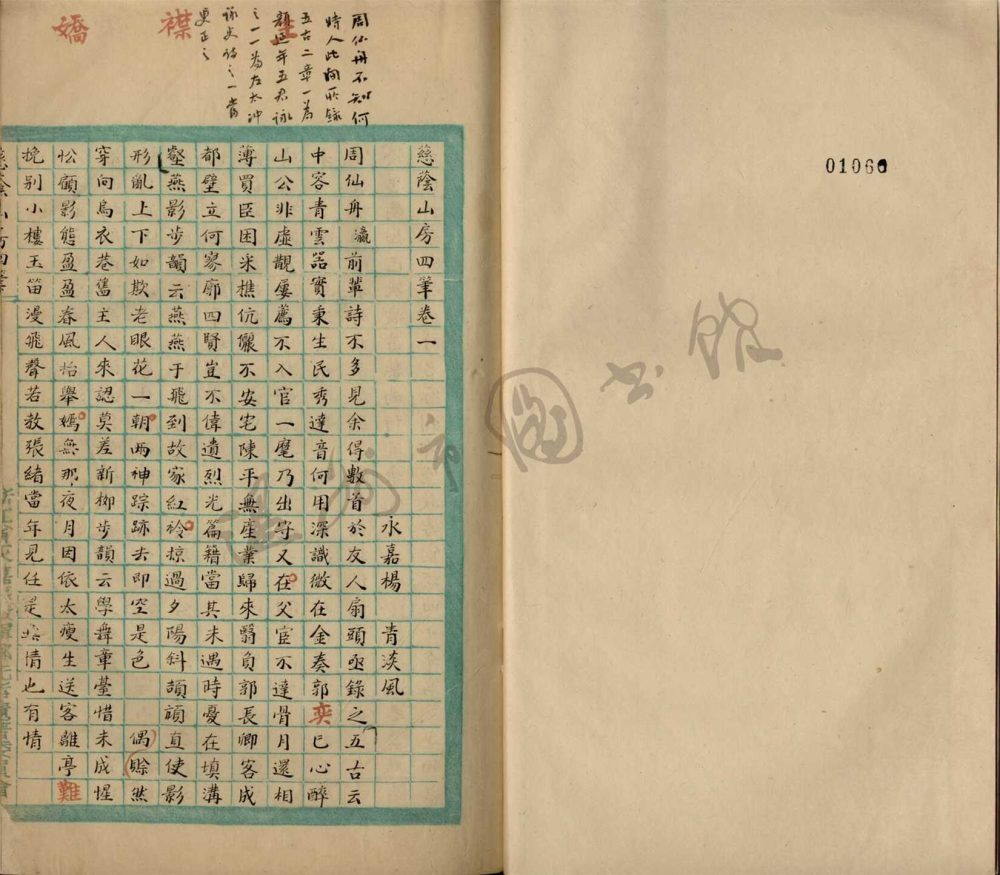 周仙舟不知何
時人此間所錄
五古二章一為
顏延年五君詠
之一一為左太沖
詠史詩之一當
更正之
襟
嬌
慈蔭山房四筆卷一
永嘉楊 青淡風
周仙舟瀛前輩詩不多見余得數首於友人扇頭亟錄之五古云
中容青雲器實秉生民秀達音何用深識微在金奏郭奕已心醉
山公非虛覯屢薦不入官一麾乃出守又在父宦不達骨月還相
薄買臣困采樵伉儷不安宅陳平無產業歸來翳負郭長卿客成
都壁立何寥廓四賢豈不偉遺烈光篇籍當其未遇時憂在填溝
壑燕影步韻云燕燕于飛到故家紅衿掠過夕陽斜頡頏直使影
形亂上下如欺老眼花一朝兩神踪跡去即空是色 偶賒然
穿向烏衣巷舊主人來認莫差新柳步韻云學舞章臺惜未成惺
忪顧影態盈盈春風抬舉嫣無那夜月因依太瘦生送客離亭難
挽別小樓玉笛漫飛聲若教張緒當年見任是無情也有情
慈蔭山房四筆
01060
溫州市圖書館